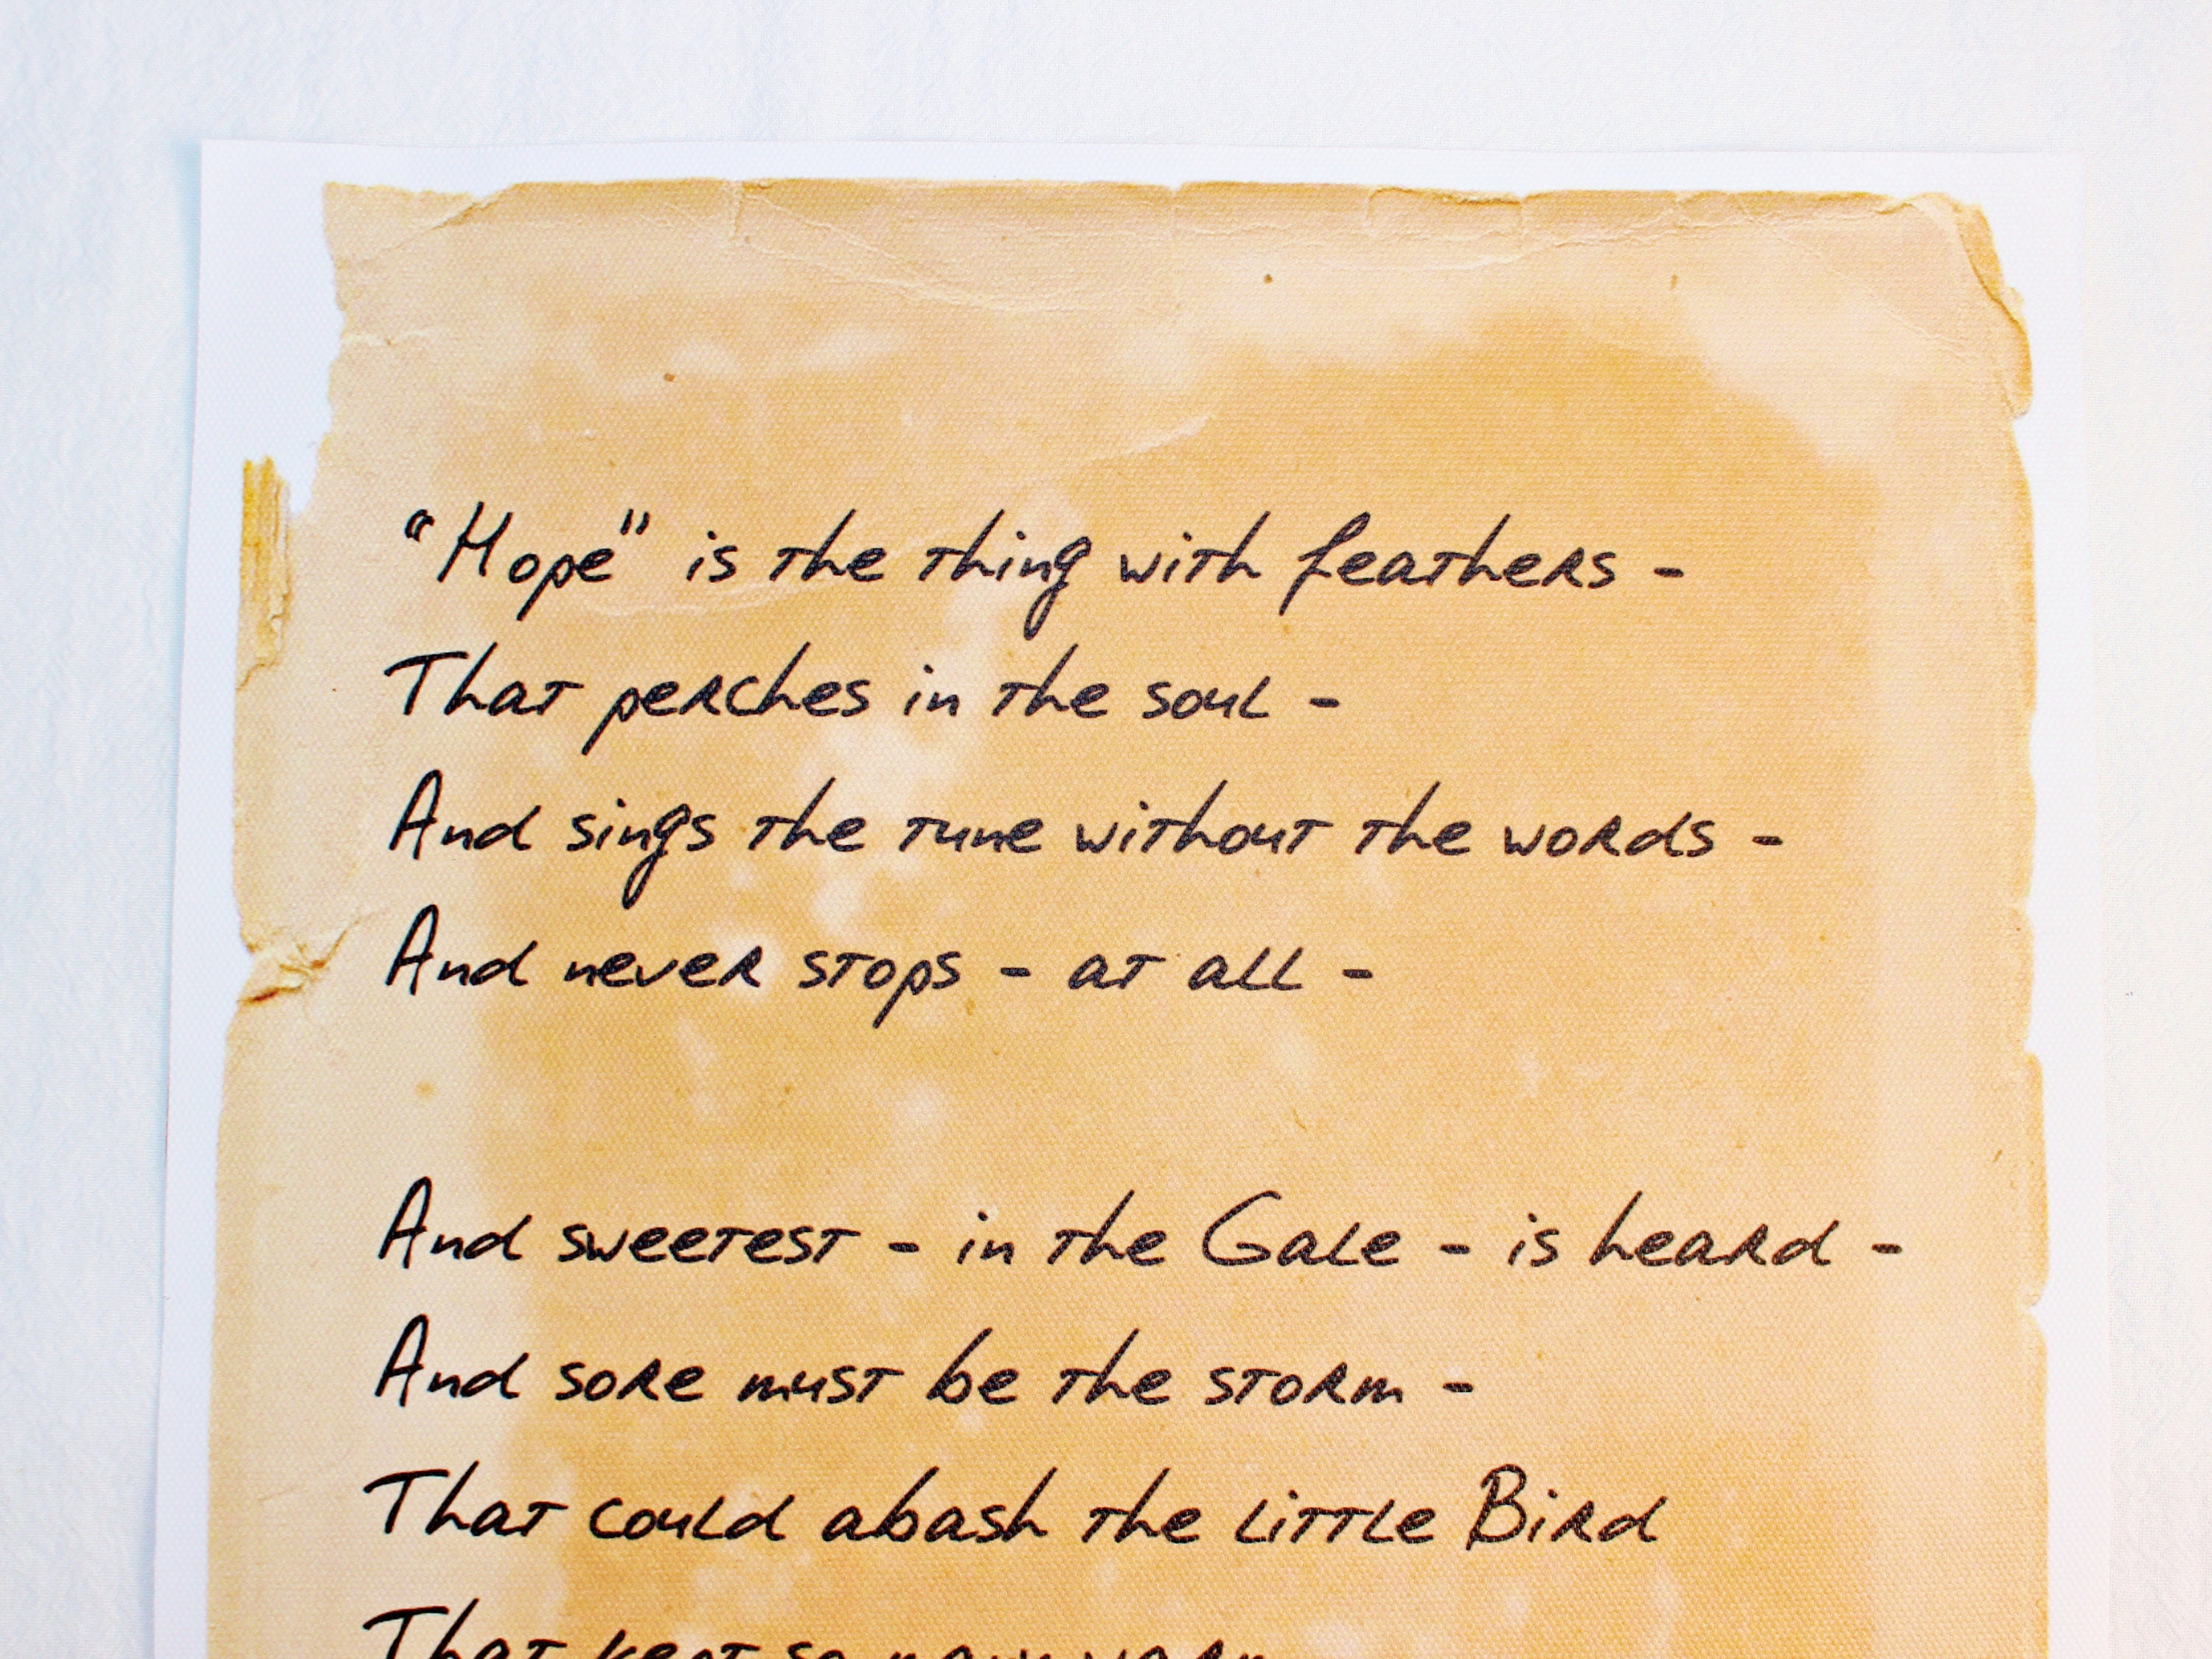 “Hope” is the thing with feathers -
That perches in the soul -
And sings the tune without the words -
And never stops - at all -
And sweetest - in the Gale - is heard -
And sore must be the storm -
That could abash the little Bird
That kept so many warm